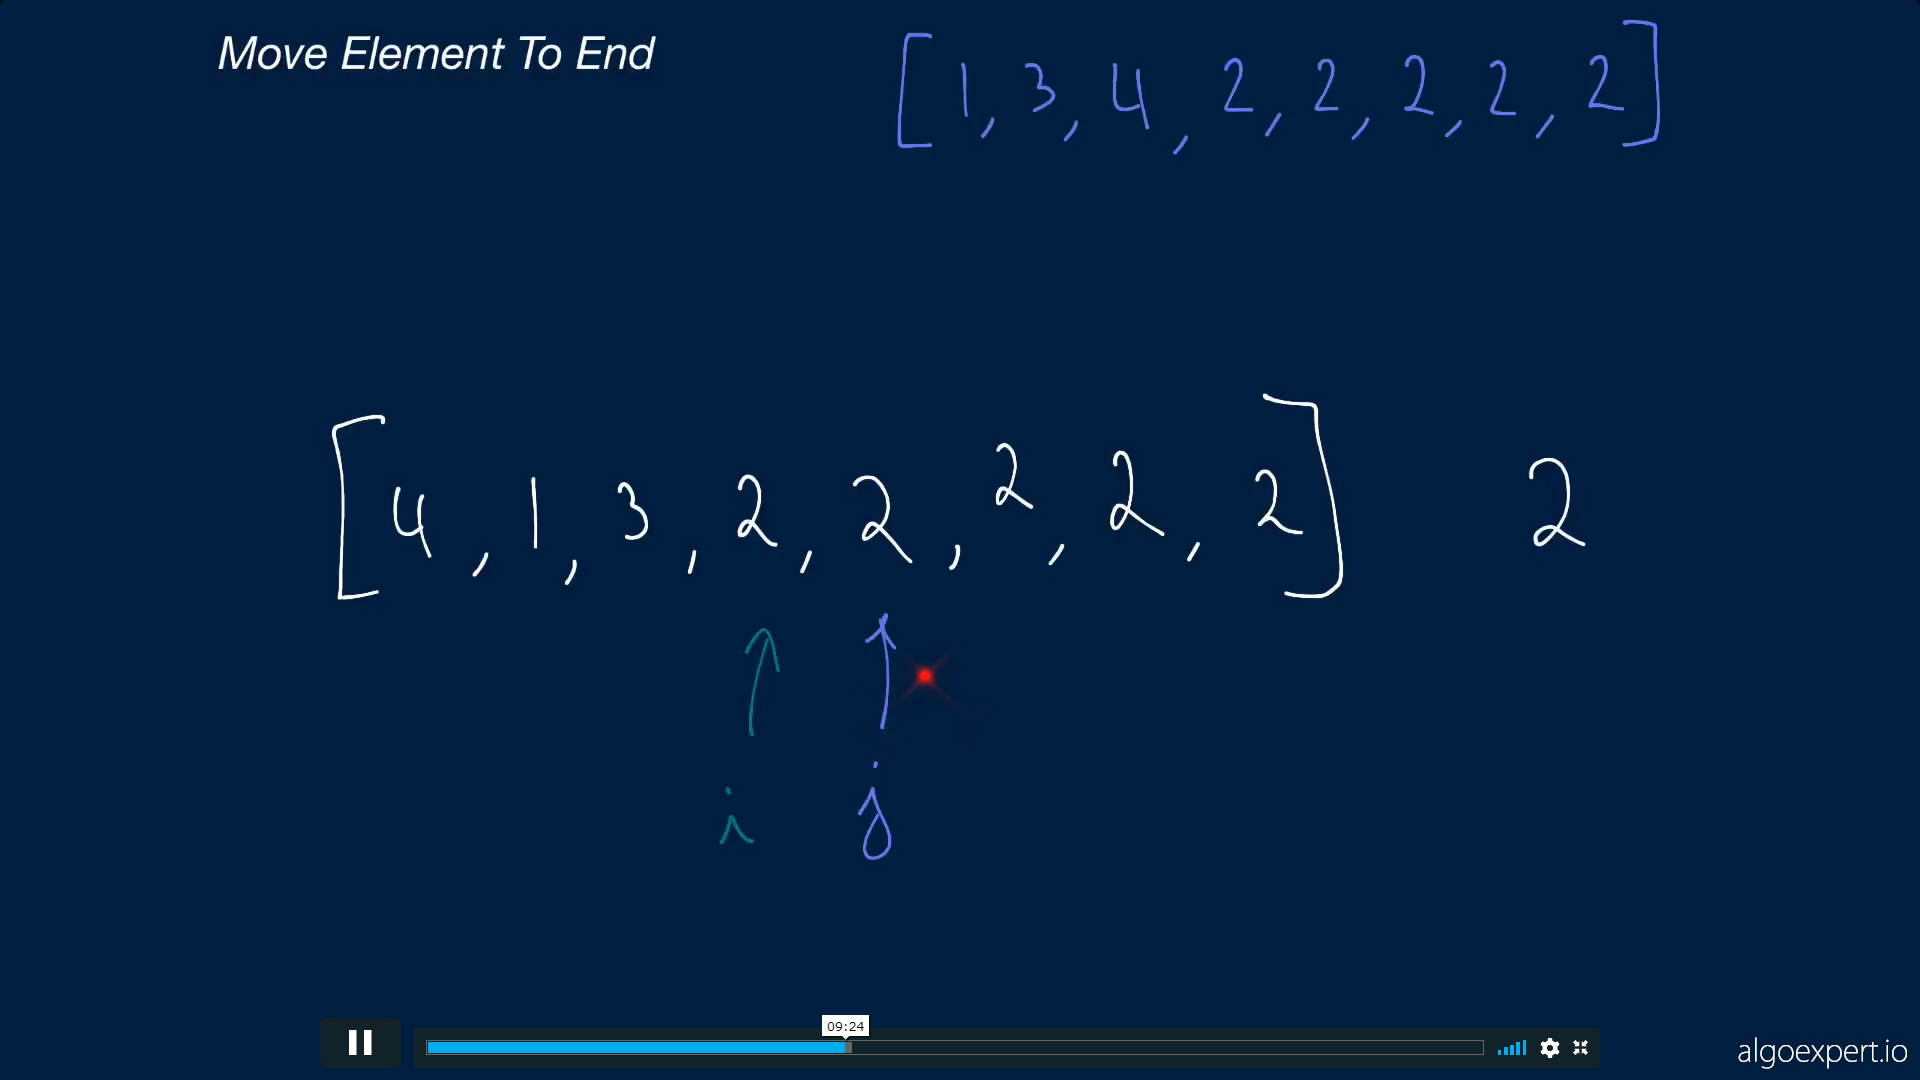 Move Element To End
[1, 3, 4, 2, 2, 2, 2, 2]
[4, 1, 3, 2, 2, 2, 2, 2] 2
i j
09:24
algoexpert.io